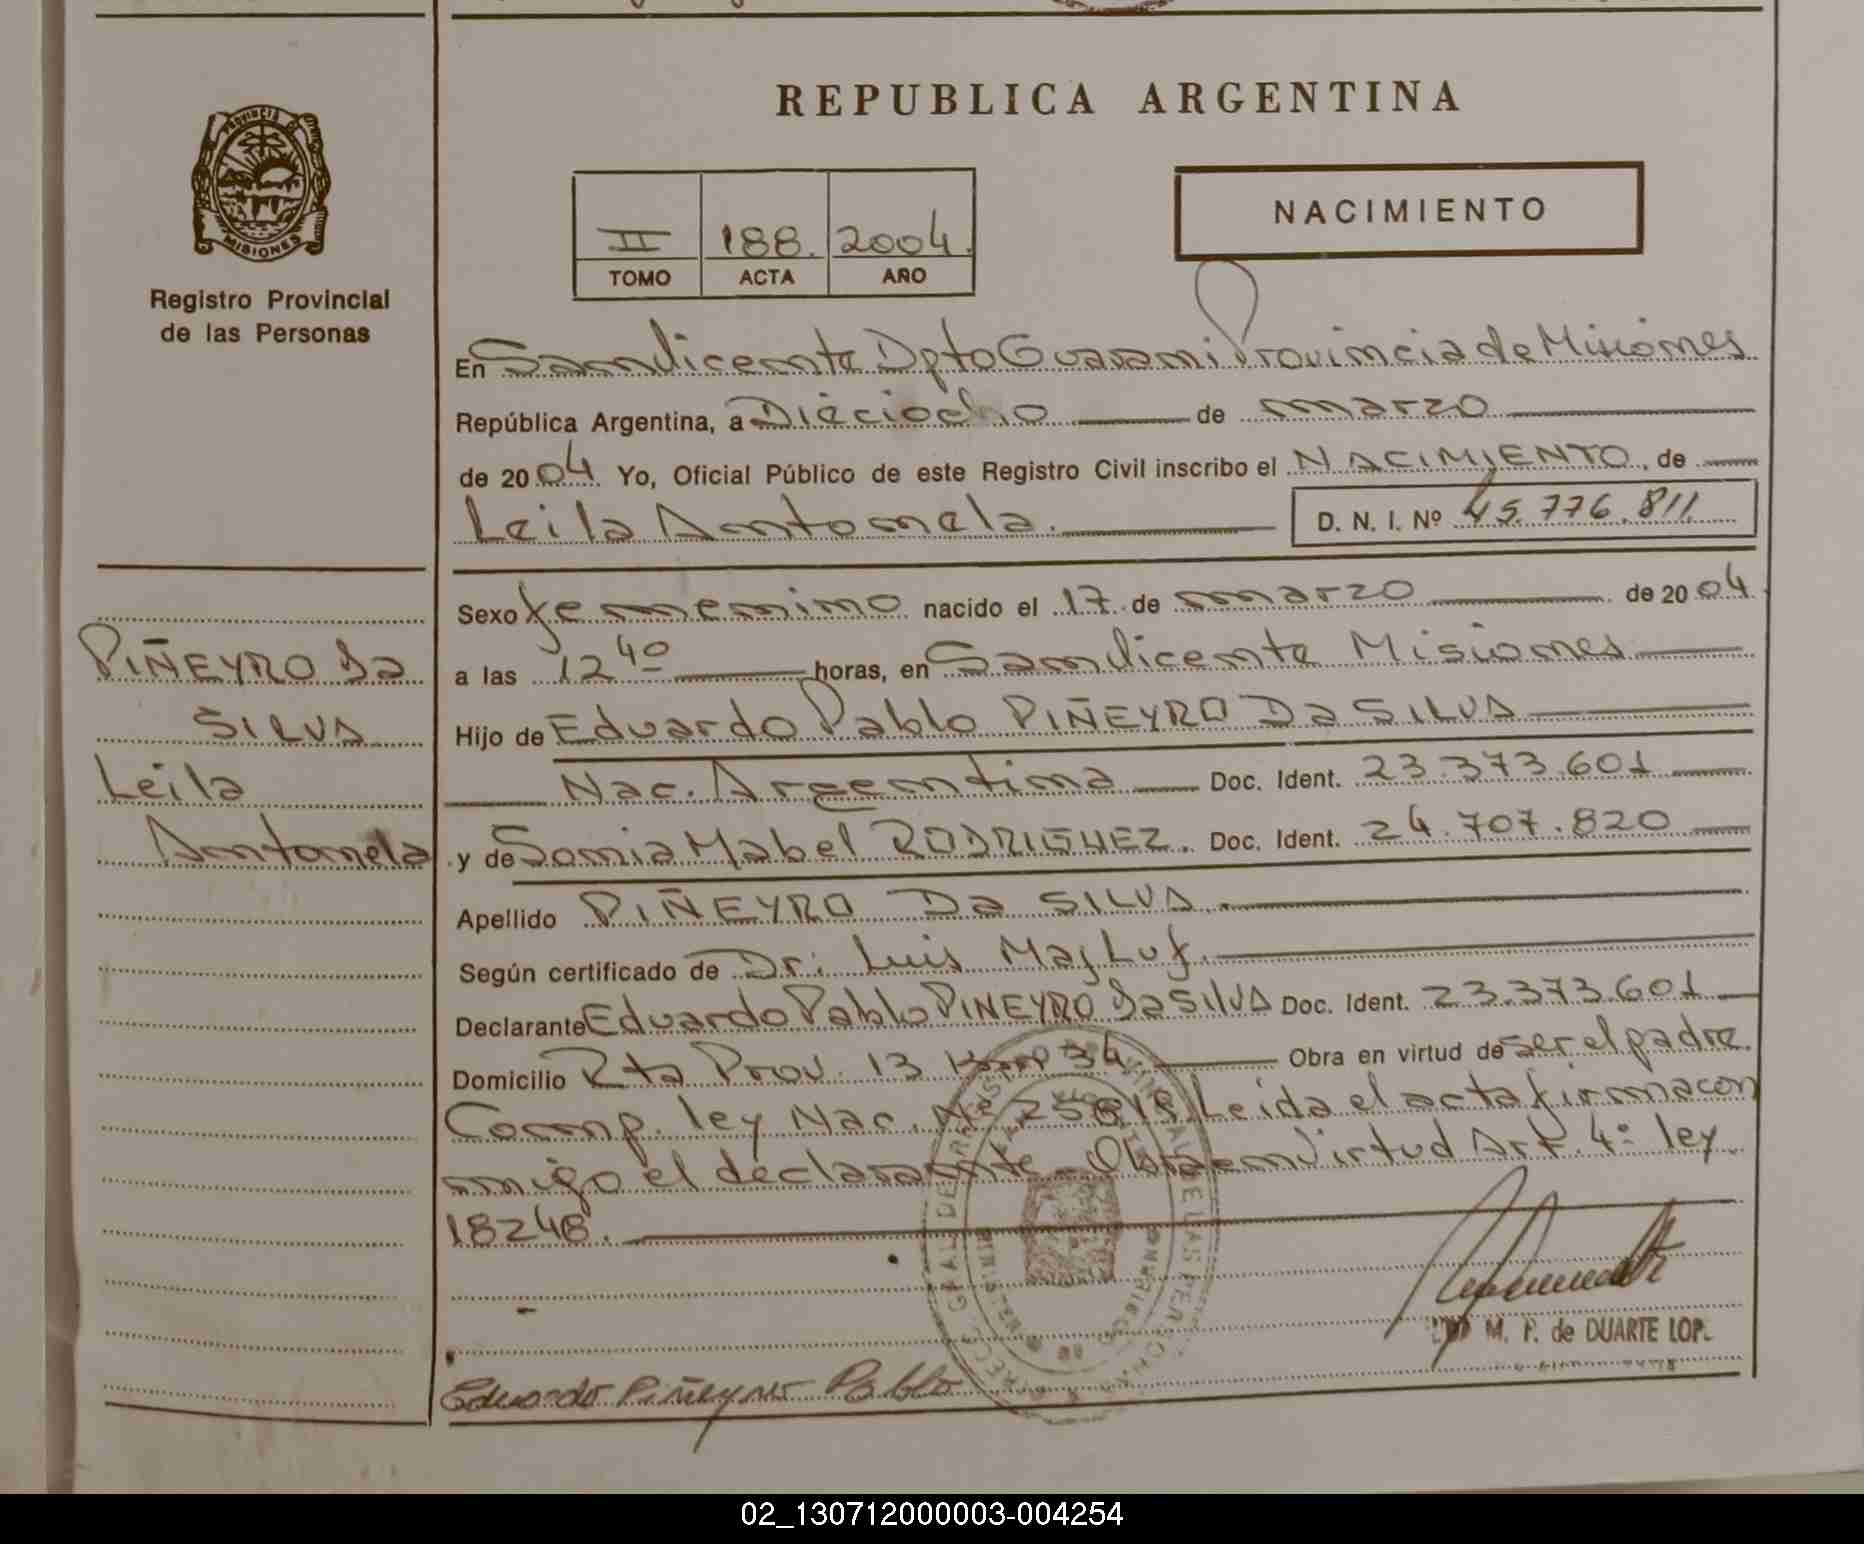 REPUBLICA ARGENTINA
PROVINCIA DE
MISIONES
Registro Provincial
de las Personas
II 188. 2004.
TOMO ACTA AÑO
NACIMIENTO
En San Vicente Dpto Guarani Provincia de Misiones
República Argentina, a Dieciocho de marzo
de 2004 Yo, Oficial Público de este Registro Civil inscribo el NACIMIENTO, de
Leila Antonela. D. N. I. Nº 45.776.811
Sexo femenino nacido el 17 de marzo de 2004
a las 12 40 horas, en San Vicente Misiones
Hijo de Eduardo Pablo PIÑEYRO Da SILVA
Nac. Argentina Doc. Ident. 23.373.601
y de Sonia Mabel RODRIGUEZ. Doc. Ident. 24.707.820
Apellido PIÑEYRO Da SILVA.
Según certificado de Dr: Luis Majluf.
Declarante Eduardo Pablo PIÑEYRO Da SILVA Doc. Ident. 23.373.601
Domicilio Rta Prov. 13 Km 34 Obra en virtud de ser el padre.
Comp. ley Nac. Nº Leida el acta firma con
migo el declarante. Obra en Virtud Art. 4º ley
18248.
M. P. de DUARTE LOP
Eduardo Piñeyro Pablo
PIÑEYRO Da
SILVA
Leila
Antonela
02_130712000003-004254